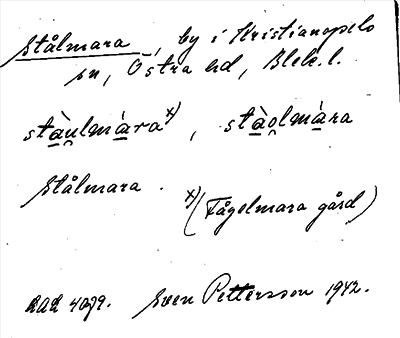 Stålmara, by i Kristianopels
sn, Östra hd, Blek. l.
stà̱u̯lmá̱ra x), stà̱o̯lmá̱ra
Stålmara.
x) (Fågelmara gård)
RAÄ 4079. Sven Pettersson 1942.